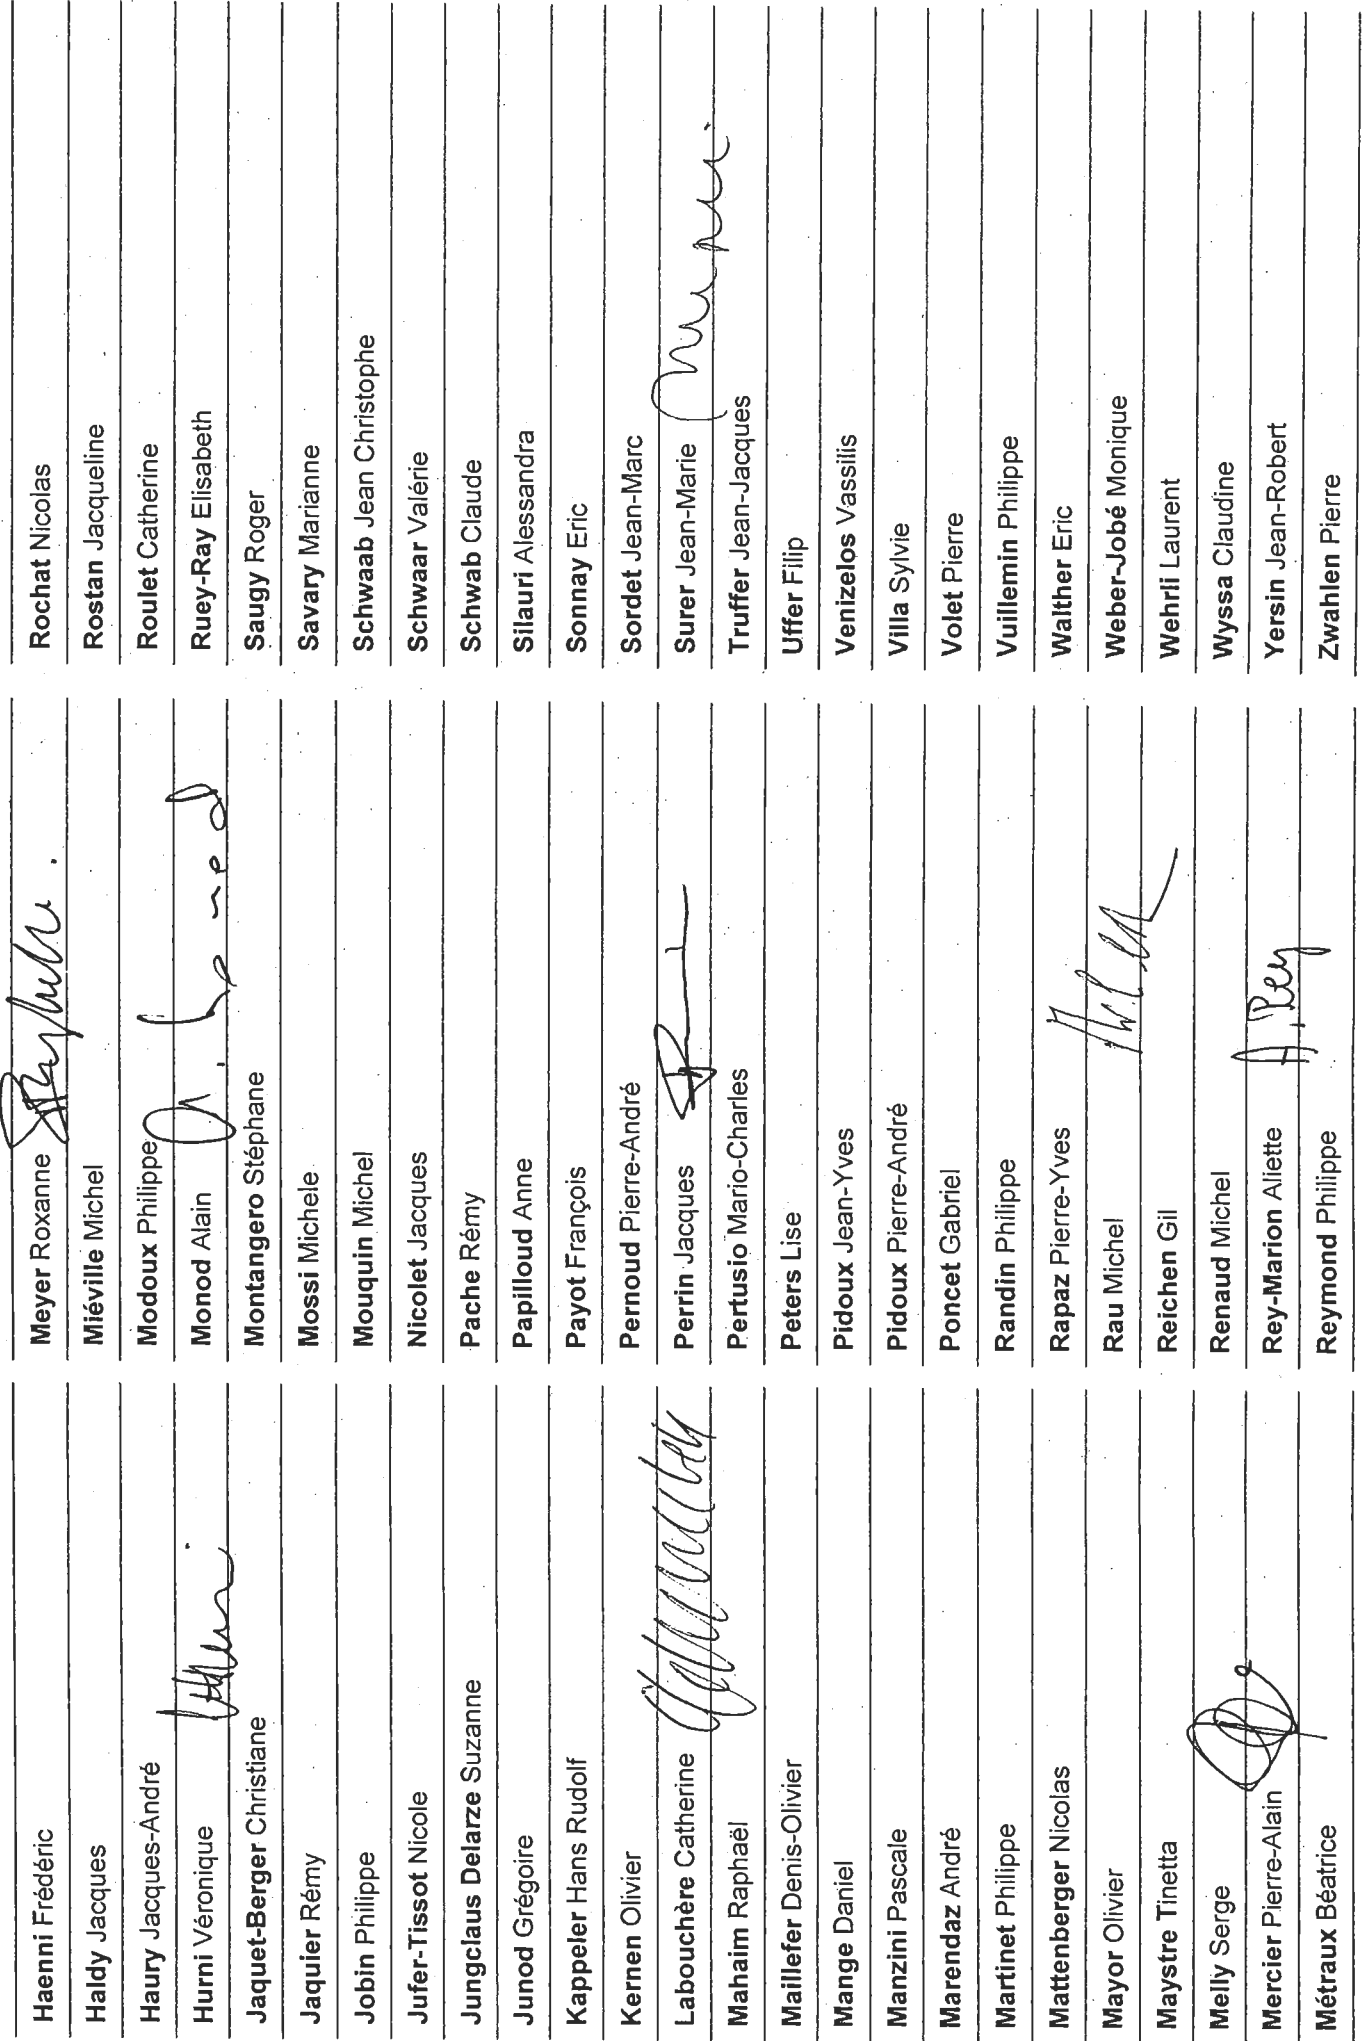 Haenni Frédéric
Haldy Jacques
Haury Jacques-André
Hurni Véronique
Jaquet-Berger Christiane
Jaquier Rémy
Jobin Philippe
Jufer-Tissot Nicole
Jungclaus Delarze Suzanne
Junod Grégoire
Kappeler Hans Rudolf
Kernen Olivier
Labouchère Catherine
Mahaim Raphaël
Maillefer Denis-Olivier
Mange Daniel
Manzini Pascale
Marendaz André
Martinet Philippe
Mattenberger Nicolas
Mayor Olivier
Maystre Tinetta
Melly Serge
Mercier Pierre-Alain
Métraux Béatrice
Meyer Roxanne
Miéville Michel
Modoux Philippe
Monod Alain
Montangero Stéphane
Mossi Michele
Mouquin Michel
Nicolet Jacques
Pache Rémy
Papilloud Anne
Payot François
Pernoud Pierre-André
Perrin Jacques
Pertusio Mario-Charles
Peters Lise
Pidoux Jean-Yves
Pidoux Pierre-André
Poncet Gabriel
Randin Philippe
Rapaz Pierre-Yves
Rau Michel
Reichen Gil
Renaud Michel
Rey-Marion Aliette
A. Rey
Reymond Philippe
Rochat Nicolas
Rostan Jacqueline
Roulet Catherine
Ruey-Ray Elisabeth
Saugy Roger
Savary Marianne
Schwaab Jean Christophe
Schwaar Valérie
Schwab Claude
Silauri Alessandra
Sonnay Eric
Sordet Jean-Marc
Surer Jean-Marie
Truffer Jean-Jacques
Uffer Filip
Venizelos Vassilis
Villa Sylvie
Volet Pierre
Vuillemin Philippe
Walther Eric
Weber-Jobé Monique
Wehrli Laurent
Wyssa Claudine
Yersin Jean-Robert
Zwahlen Pierre